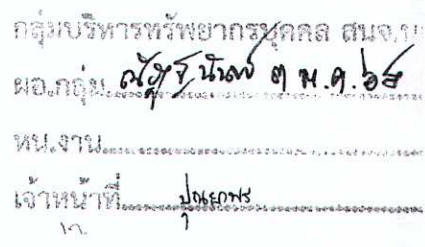 กลุ่มบริหารทรัพยากรบุคคล สนจ.
ผอ.กลุ่ม ณัฏฐ์นันท์ ๓ ม.ค. ๖๕
หน.งาน
เจ้าหน้าที่ ปุณยาพร